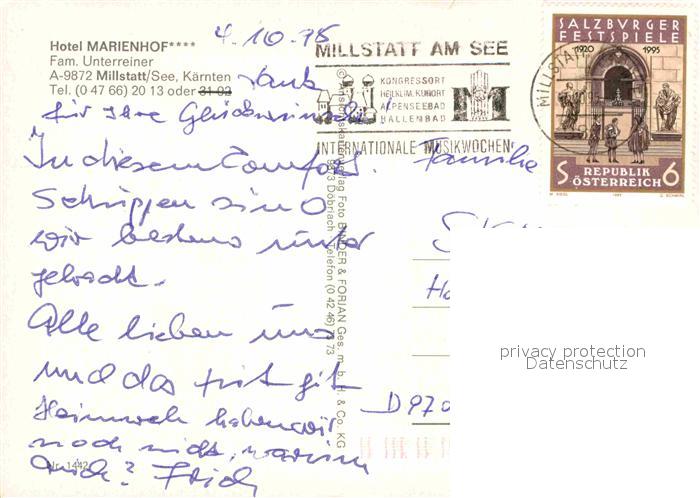 Hotel MARIENHOF****
Fam. Unterreiner
A-9872 Millstatt/See, Kärnten
Tel. (0 47 66) 20 13 oder 31 02
4.10.95
Dank
für Ihre Glückwünsche!
In diesem Comfort
Schuppen sind
wir bestens unter
gebracht.
Alle lieben uns
und das tut gut
Heimweh haben wir
noch nicht, warum
auch?
Nr. 1442
© Ansichtskartenverlag Foto BINDER & FORJAN Ges. m. b. H. & Co. KG
9873 Döbriach, Telefon (0 42 46) 73
MILLSTATT AM SEE
KONGRESSORT
HEILKLIM. KURORT
ALPENSEEBAD
HALLENBAD
INTERNATIONALE MUSIKWOCHEN
MILLSTATT
SALZBURGER
FESTSPIELE
1920 1995
S 6
REPUBLIK
ÖSTERREICH
Familie
D 970
privacy protection
Datenschutz